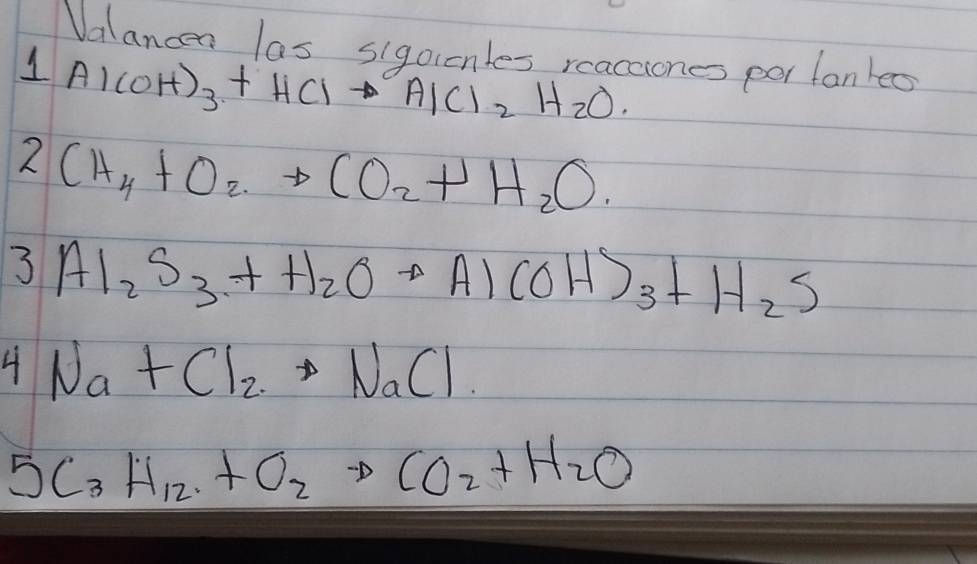 Valancea las sigoientes reacciones por tanteo
1 Al(OH)₃ + HCl → AlCl₂ H₂O.
2 CH₄ + O₂. → CO₂ + H₂O.
3 Al₂S₃. + H₂O → Al(OH)₃ + H₂S
4 Na + Cl₂. → NaCl.
5 C₃H₁₂. + O₂ → CO₂ + H₂O